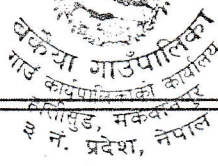 बकैया गाउँपालिका
गाउँ कार्यपालिकाको कार्यालय
मकवानपुर
३ नं. प्रदेश, नेपाल